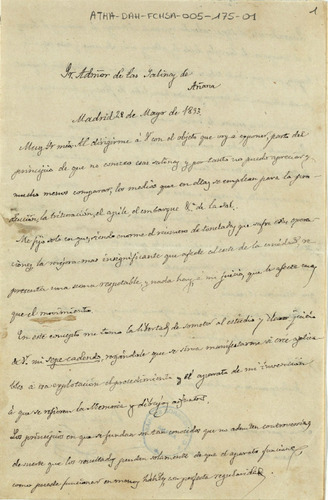 ATHA-DAH-FCHSA-005-175-01
1
Sr. Admor de las Salinas de
Añana
Madrid 28 de Mayo de 1893.
Muy Sr mio: Al dirigirme á V con el objeto que voy a exponer, parto del
principio de que no conozco esas salinas y por tanto no puedo apreciar y
mucho menos comparar, los medios que en ellas se emplean para la pro
ducción, la trituración, el apile, el embarque &ª de la sal.
Me fijo solo en que, siendo enorme el número de toneladas que sufre esas opera
ciones, la mejora mas insignificante que afecte al coste de la unidad re
presenta una suma respetable, y nada hay á mi juicio, que le afecte mas
que el movimiento.
En este concepto me tomo la libertad de someter al estudio y buen juicio
de V. mi soga cadena, rogándole que se sirva manifestarme si cree aplica
bles á esa explotación el procedimiento y el aparato de mi invención
á que se refieren la Memoria y dibujos adjuntos.
Los principios en que se fundan son conocidos que no admiten controversia,
de suerte que los resultados penden solamente de que el aparato funcione,
como puede funcionar en manos hábiles, con perfecta regularidad.